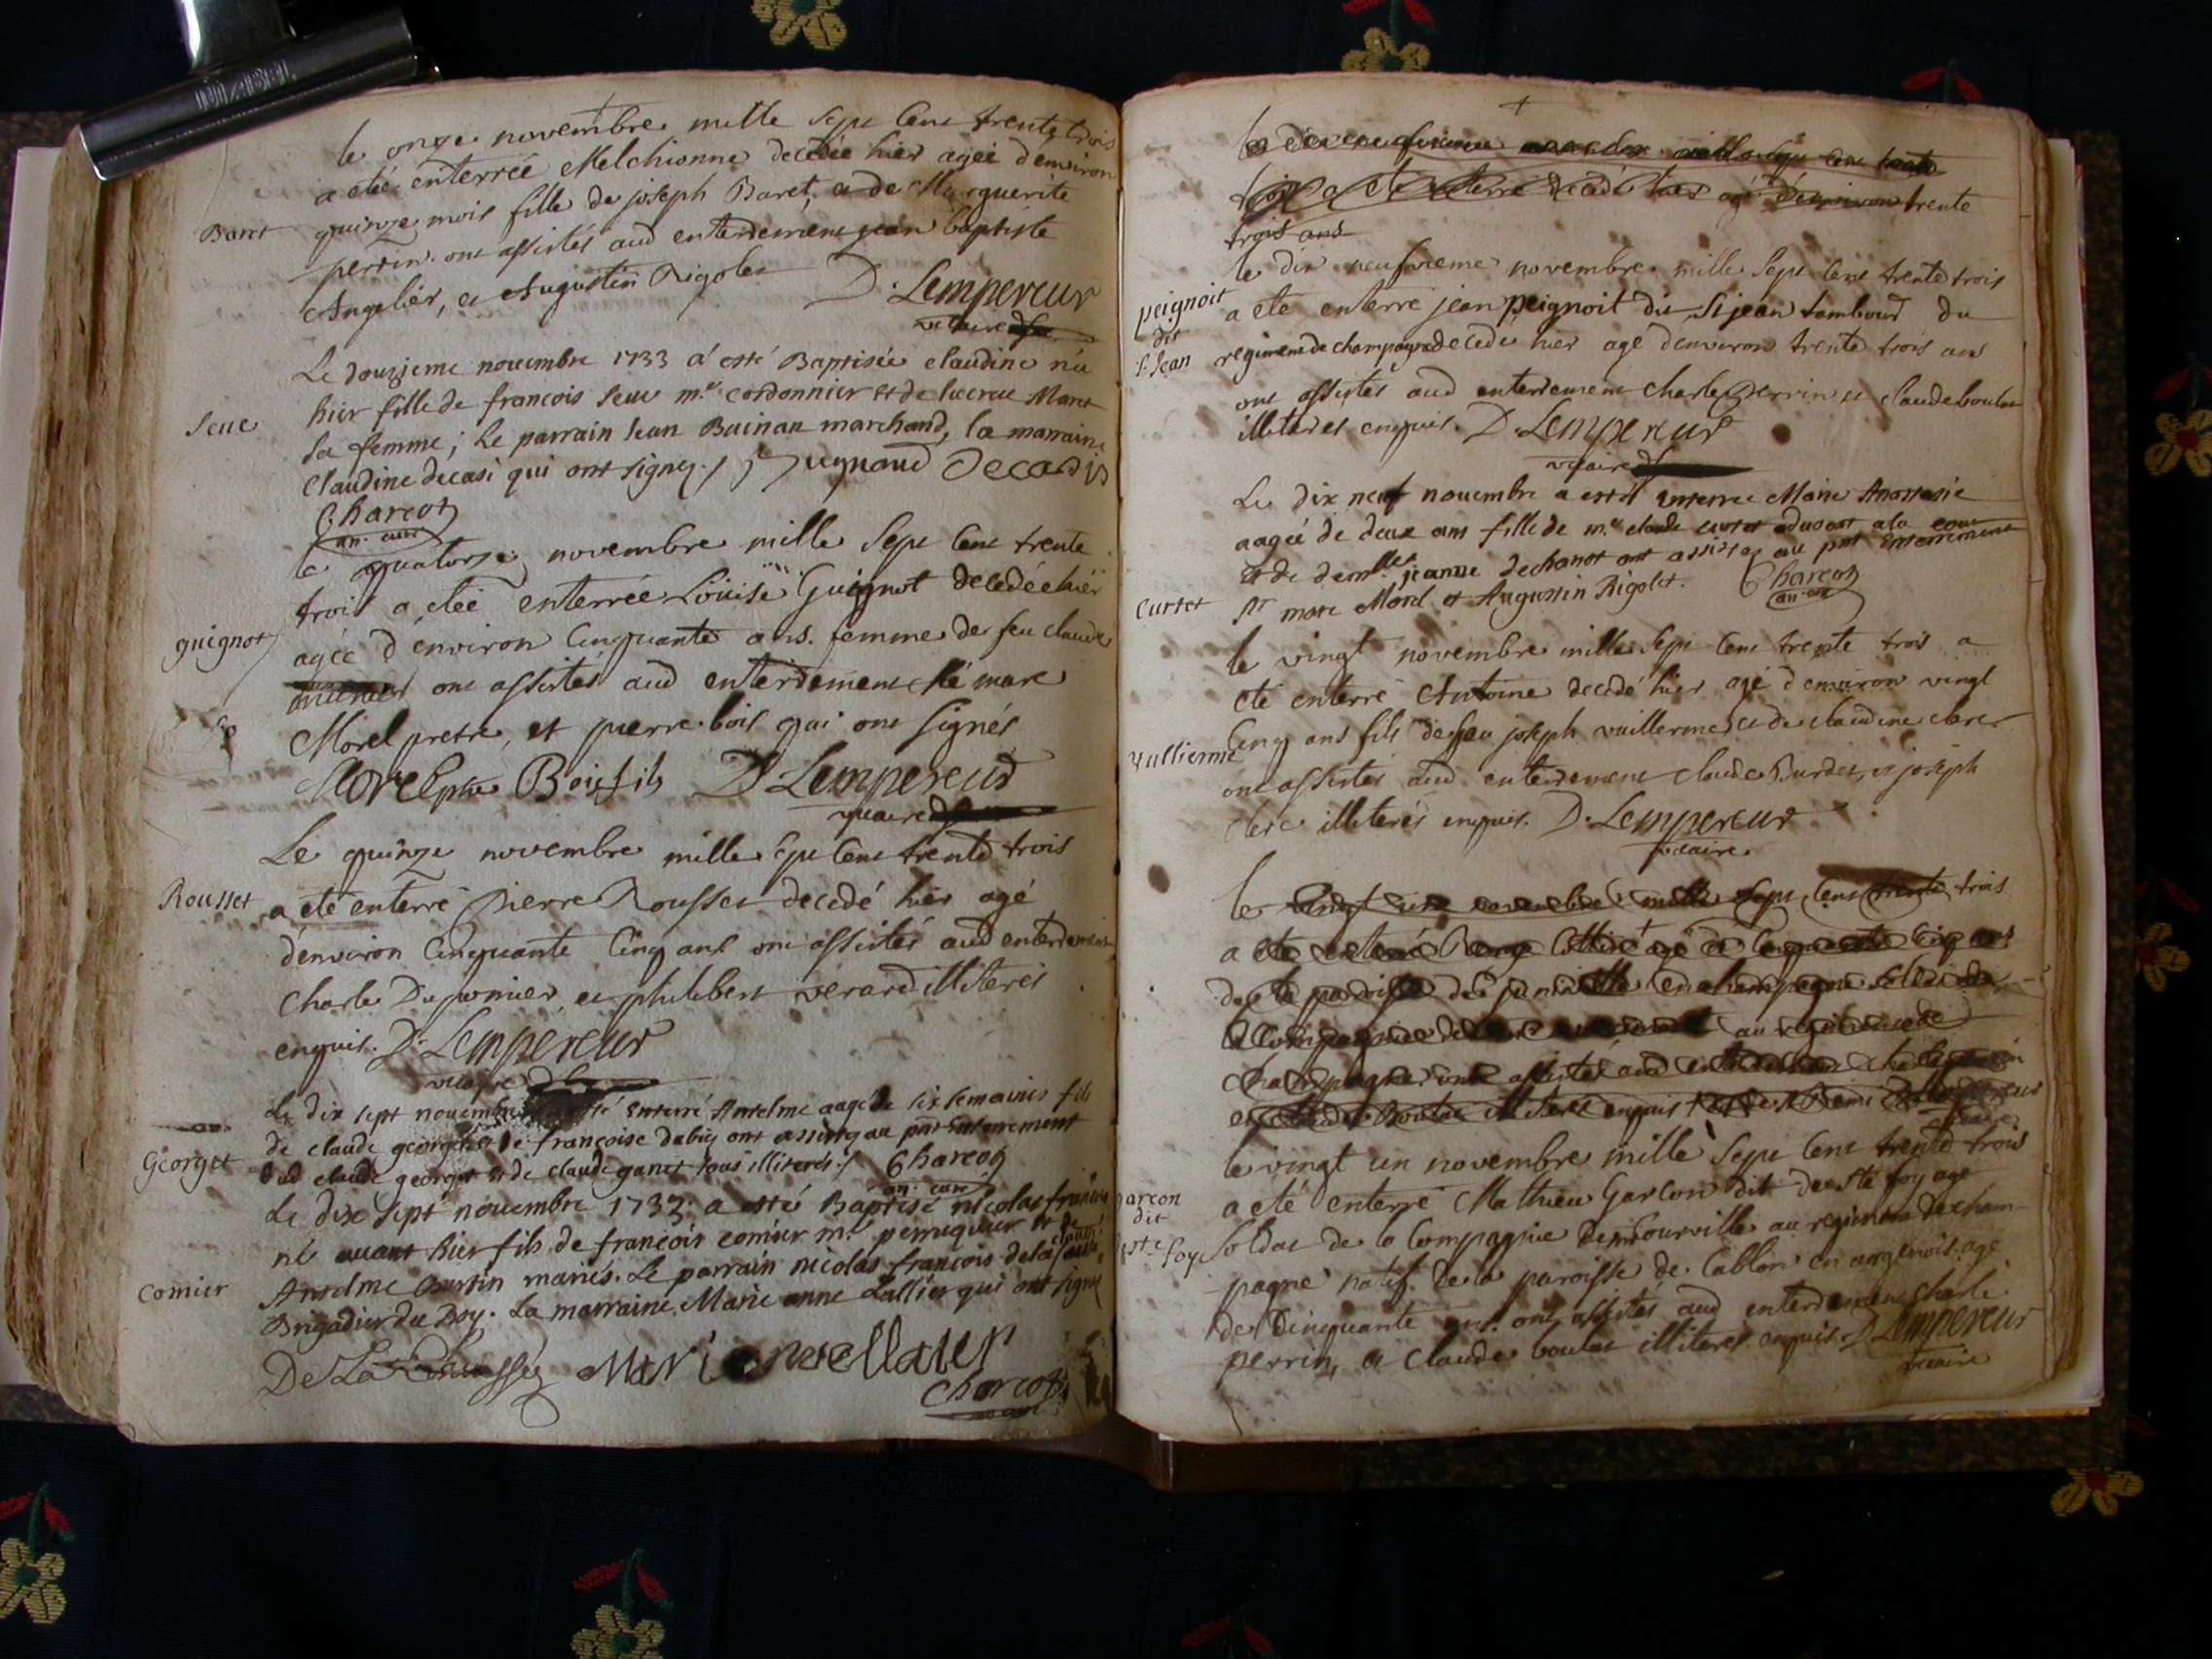 le onze novembre mille sept cent trente trois
a etée enterrée Melchionne decedée hier agée d'environ
Baret
quinze mois fille de joseph Baret, et de Marguerite
perrin. ont assistés aud enterrement jean baptiste
Angelier, et Augustin Rigolet D. Lempereur
vicaire
Le douzieme novembre 1733 a esté Baptisée claudine née
hier fille de francois seue m.e cordonnier et de Maret
Seue
sa femme; Le parrain Jean marchand, la marraine
claudine decasi qui ont signez. decadis
Charcot
an. curé
le quatorze novembre mille sept cent trente
trois a etée enterrée Louise Guignot decedée hier
guignot
agée d'environ cinquante ans. femme de feu claude
ont assistés aud enterrement Mre marc
Morel pretre, et pierre bois qui ont signés
Morel ptre Bois fils D Lempereur
vicaire
Le quinze novembre mille sept cent trente trois
Rousset
a eté enterré Pierre Rousset decedé hier agé
d'environ cinquante cinq ans ont assistés aud enterrement
Charle Duponier, et philibert verard illiterés
enquis. D. Lempereur
vicaire
Le dix sept novembre esté enterré Anselme aagé de six semaines fils
de claude georget et de françoise dubiez ont assistez au pnt enterrement
Georget
dud claude georget et de claude ganet tous illiterés Charcot
an. curé
Le dix sept novembre 1733 a esté Baptisé nicolas francois
né avant hier fils de francois comier m.e perruquier et de
Comier
Anselme Burtin mariés. Le parrain nicolas francois dela
Brigadier du Roy. La marraine Marie anne Lallier qui ont signé
De La Chaussée Charcot
le trente
a ete enterré decedé hier agé d'environ trente
trois ans
le dix neufvieme novembre mille sept cent trente trois
peignoit
dit
St Jean
a eté enterré jean peignoit dit St jean tambour du
regiment de champagne decedé hier agé d'environ trente trois ans
ont assistés aud enterrement charle perrin et claude boulet
illiterés enquis. D. Lempereur
vicaire
Le dix neuf novembre a esté enterrée Marie Anastasie
aagée de deux ans fille de m.e claude curtet advocat a la cour
et de demlle jeanne dechanot ont assistez au pnt enterrement
Curtet
Sr marc Morel et Augustin Rigolet. Charcot
an. curé
le vingt novembre mille sept cent trente trois a
eté enterré Antoine decedé hier agé d'environ vingt
Vullierme
cinq ans fils de feu joseph vuillerme, et de claudine clerc
ont assistés aud enterrement claude Burdet, et joseph
clerc illiterés enquis. D. Lempereur
vicaire
le vingt un novembre mille sept cent trente trois
a eté enterré agé de cinquante cinq ans
de la paroisse de en champagne soldat de
la compagnie de au regiment de
champagne ont assistés aud enterrement charle perrin
et claude Boulet illiterés enquis
le vingt un novembre mille sept cent trente trois
garcon
dit
ste foy
a eté enterré Mathieu Garcon dit de Ste foy agé
soldat de la compagnie au regiment de cham-
pagne natif de la paroisse de Cablon en angenois. agé
de cinquante ans. ont assistés aud enterrement charle
perrin, et claude boulet illiterés enquis. D Lempereur
vicaire